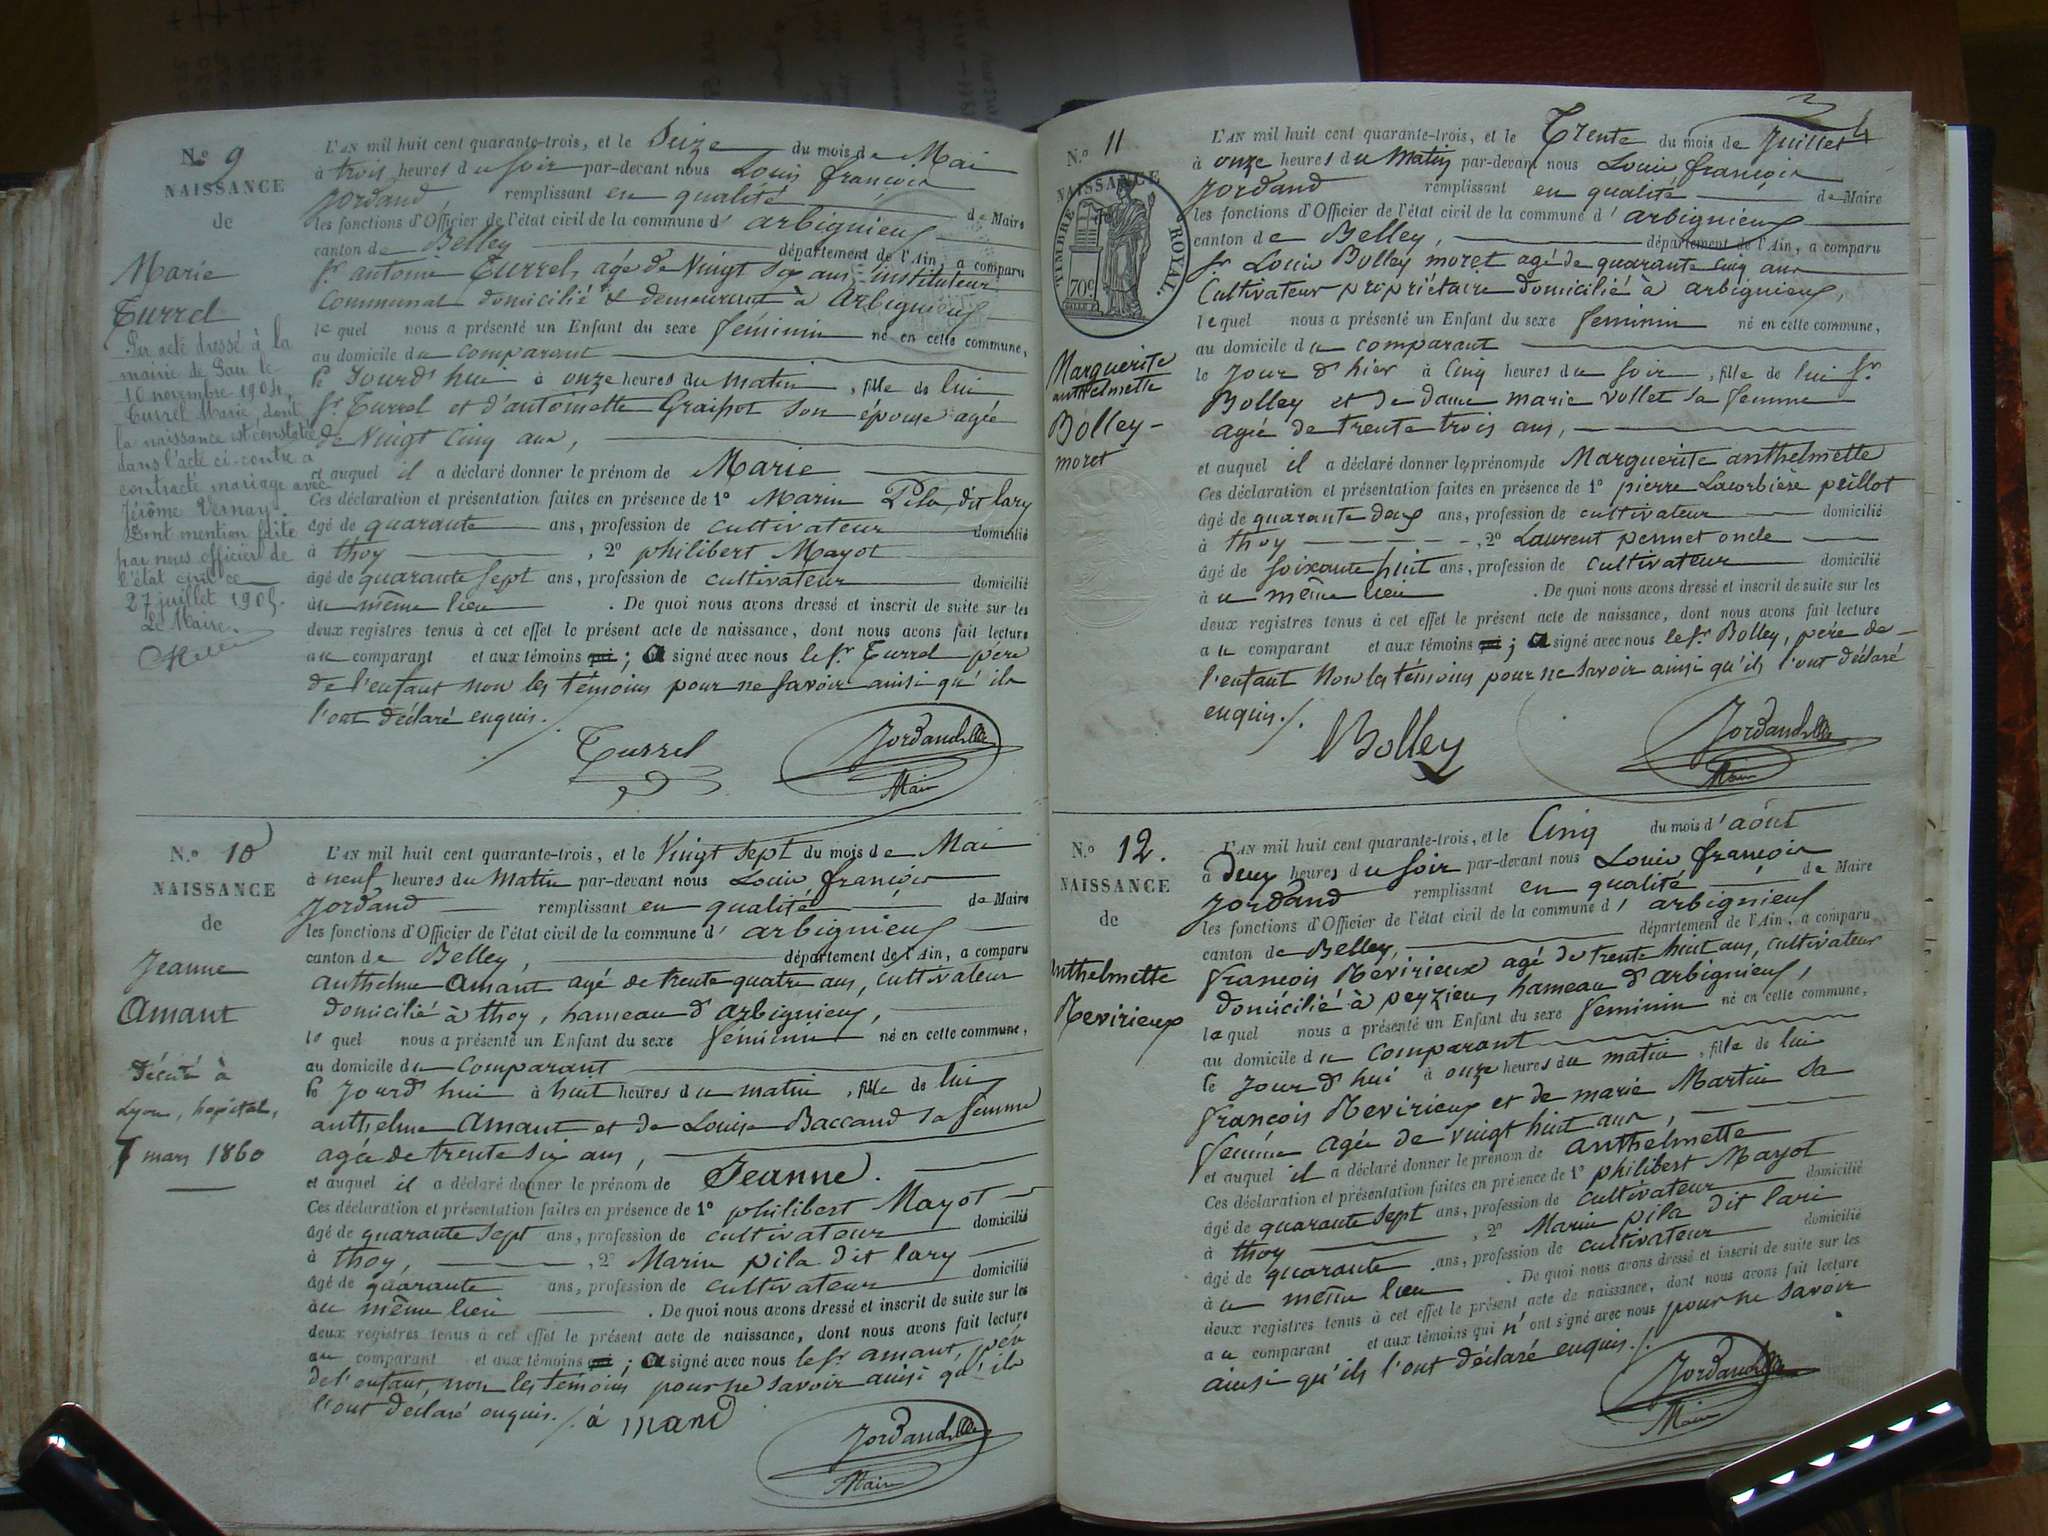 N.o 9
NAISSANCE
de
Marie
Turrel
Par acte dressé à la
mairie de Pau le
10 novembre 1904,
Turrel Marie, dont
la naissance est constatée
dans l'acte ci-contre a
contracté mariage avec
Jérôme Vernay.
Dont mention faite
par nous officier de
l'état civil ce
27 juillet 1905.
Le Maire.
L'AN mil huit cent quarante-trois, et le Seize du mois de Mai
à trois heures du soir par-devant nous Louis françois
Jordand remplissant en qualité de Maire
les fonctions d'Officier de l'état civil de la commune d'arbignieux
canton de Belley département de l'Ain, a comparu
Sr. antoine Turrel, agé de Vingt six ans instituteur
Communal domicilié & demeurant à Arbignieux
lequel nous a présenté un Enfant du sexe féminin né en cette commune,
au domicile du comparant
le Jourd'hui à onze heures du matin, fille de lui
Sr. Turrel et d'antoinette Graipot son épouse agée
de Vingt Cinq ans,
et auquel il a déclaré donner le prénom de Marie
Ces déclaration et présentation faites en présence de 1o Marin Pila dit lary
âgé de quarante ans, profession de cultivateur domicilié
à thoy, 2o philibert Mayot
âgé de quarante sept ans, profession de cultivateur domicilié
au même lieu. De quoi nous avons dressé et inscrit de suite sur les
deux registres tenus à cet effet le présent acte de naissance, dont nous avons fait lecture
au comparant et aux témoins qui; a signé avec nous le Sr. Turrel père
de l'enfant non les témoins pour ne savoir ainsi qu'ils
l'ont déclaré enquis./.
Turrel
Jordand
Maire
N.o 10
NAISSANCE
de
Jeanne
Amant
Décédé à
Lyon, hôpital,
7 mars 1860
L'AN mil huit cent quarante-trois, et le Vingt sept du mois de Mai
à neuf heures du Matin par-devant nous Louis françois
Jordand remplissant en qualité de Maire
les fonctions d'Officier de l'état civil de la commune d'arbignieux
canton de Belley, département de l'Ain, a comparu
anthelme Amant agé de trente quatre ans, cultivateur
domicilié à thoy, hameau d'arbignieux,
lequel nous a présenté un Enfant du sexe féminin né en cette commune,
au domicile du comparant
le Jourd'hui à huit heures du matin, fille de lui
anthelme Amant et de Louise Baccand sa femme
agée de trente six ans,
et auquel il a déclaré donner le prénom de Jeanne.
Ces déclaration et présentation faites en présence de 1o philibert Mayot
âgé de quarante sept ans, profession de cultivateur domicilié
à thoy, 2o Marin pila dit lary
âgé de quarante ans, profession de cultivateur domicilié
au même lieu. De quoi nous avons dressé et inscrit de suite sur les
deux registres tenus à cet effet le présent acte de naissance, dont nous avons fait lecture
au comparant et aux témoins qui; a signé avec nous le Sr. amant, père
de l'enfant, non les témoins pour ne savoir ainsi qu'ils
l'ont déclaré enquis./. amand
Jordand
Maire
N.o 11
NAISSANCE
TIMBRE ROYAL.
70c
Marguerite
anthelmette
Bolley-
moret
L'AN mil huit cent quarante-trois, et le Trente du mois de Juillet
à onze heures du Matin par-devant nous Louis françois
Jordand remplissant en qualité de Maire
les fonctions d'Officier de l'état civil de la commune d'arbignieux
canton de Belley, département de l'Ain, a comparu
Sr. Louis Bolley moret agé de quarante cinq ans
Cultivateur propriétaire domicilié à arbignieux,
lequel nous a présenté un Enfant du sexe féminin né en cette commune,
au domicile du comparant
le Jour d'hier à Cinq heures du soir, fille de lui Sr.
Bolley et de dame marie Vollet sa femme
agée de trente trois ans,
et auquel il a déclaré donner les prénoms de Marguerite anthelmette
Ces déclaration et présentation faites en présence de 1o pierre Lacorbière peillot
âgé de quarante deux ans, profession de cultivateur domicilié
à thoy, 2o Laurent pennet oncle
âgé de soixante huit ans, profession de cultivateur domicilié
à u même lieu. De quoi nous avons dressé et inscrit de suite sur les
deux registres tenus à cet effet le présent acte de naissance, dont nous avons fait lecture
au comparant et aux témoins qui; a signé avec nous le Sr. Bolley, père de
l'enfant Non les témoins pour ne savoir ainsi qu'ils l'ont déclaré
enquis./.
Bolley
Jordand
Maire
N.o 12.
NAISSANCE
de
Anthelmette
Revirieux
L'AN mil huit cent quarante-trois, et le Cinq du mois d'août
à deux heures du soir par-devant nous Louis françois
Jordand remplissant en qualité de Maire
les fonctions d'Officier de l'état civil de la commune d'arbignieux
canton de Belley, département de l'Ain, a comparu
françois Revirieux agé de trente huit ans, cultivateur
domicilié à peyzieu, hameau d'arbignieux,
lequel nous a présenté un Enfant du sexe féminin né en cette commune,
au domicile du comparant
le Jour d'hui à onze heures du matin, fille de lui
françois Revirieux et de marie Martin sa
femme agée de vingt huit ans,
et auquel il a déclaré donner le prénom de anthelmette
Ces déclaration et présentation faites en présence de 1o philibert Mayot
âgé de quarante sept ans, profession de cultivateur domicilié
à thoy, 2o Marin pila dit lari
âgé de quarante ans, profession de cultivateur domicilié
à u même lieu. De quoi nous avons dressé et inscrit de suite sur les
deux registres tenus à cet effet le présent acte de naissance, dont nous avons fait lecture
au comparant et aux témoins qui n'ont signé avec nous pour ne savoir
ainsi qu'ils l'ont déclaré enquis./.
Jordand
Maire